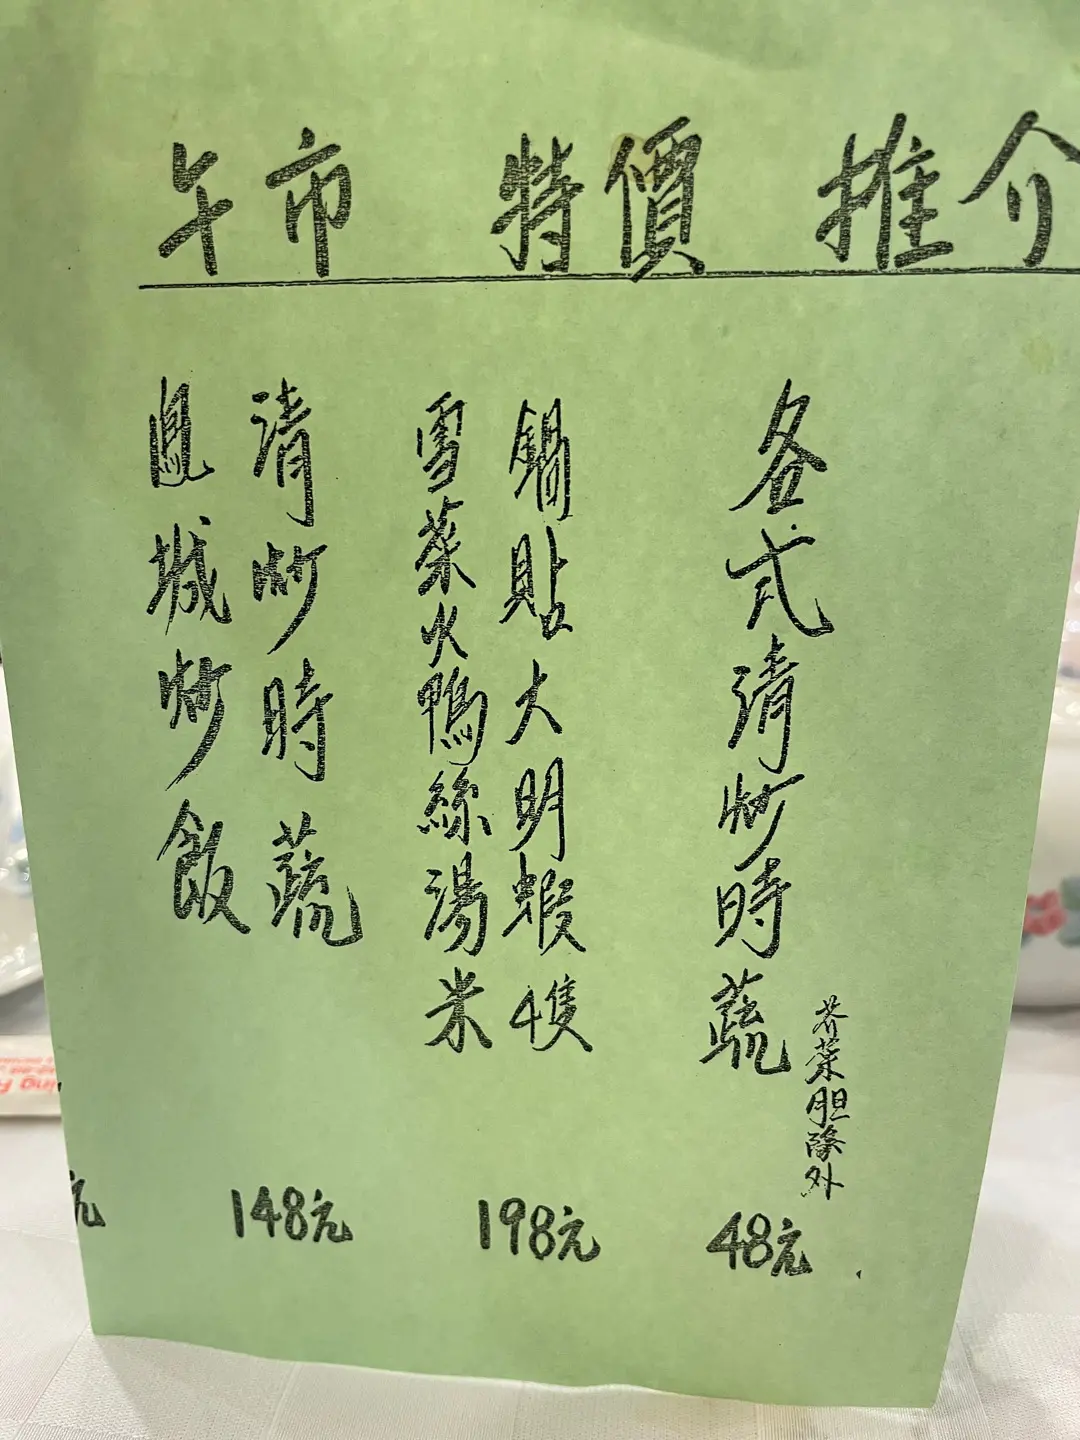 午市 特價 推介
各式清炒時蔬
芥菜胆除外
48元
鍋貼大明蝦4隻
雪菜火鴨絲湯米
198元
清炒時蔬
鳳城炒飯
148元
元